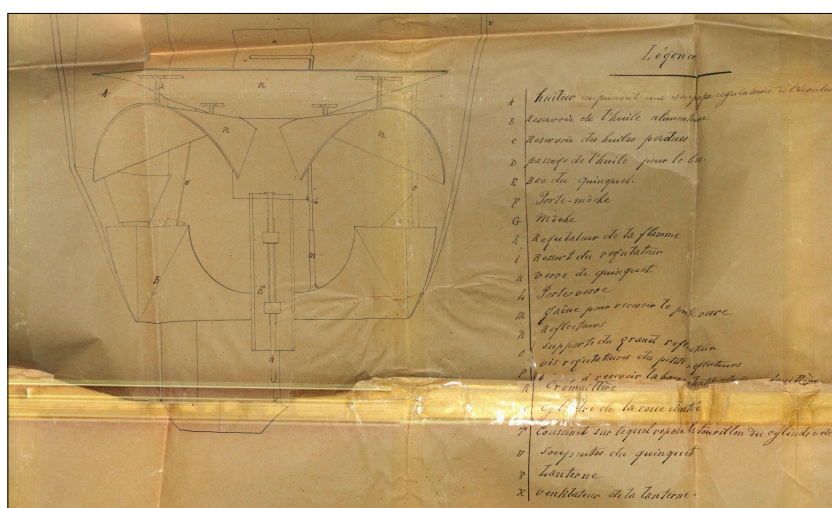 Légend
A huilier
B Reservoir de l'huile alimentaire
C Reservoir des huiles perdues
D passage de l'huile pour le bec
E Bec du quinquet.
F Porte-mèche
G Mèche
h Regulateur de la flamme
i Ressort du regulateur
K Verre de quinquet
L Porte verre
m gaîne pour recevoir le porte verre
n Reflecteurs
o supports du grand reflecteur
P vis regulatures des petits reflecteurs
à recevoir la
R Crémaillère
cylindre de la roue dentée
T Coussinet sur lequel repose le tourillon du cylindre de
v Soupentes du quinquet
Lanterne
X ventilateur de la lanterne.
v
n
A
n
n
n
o
B
E
m
h